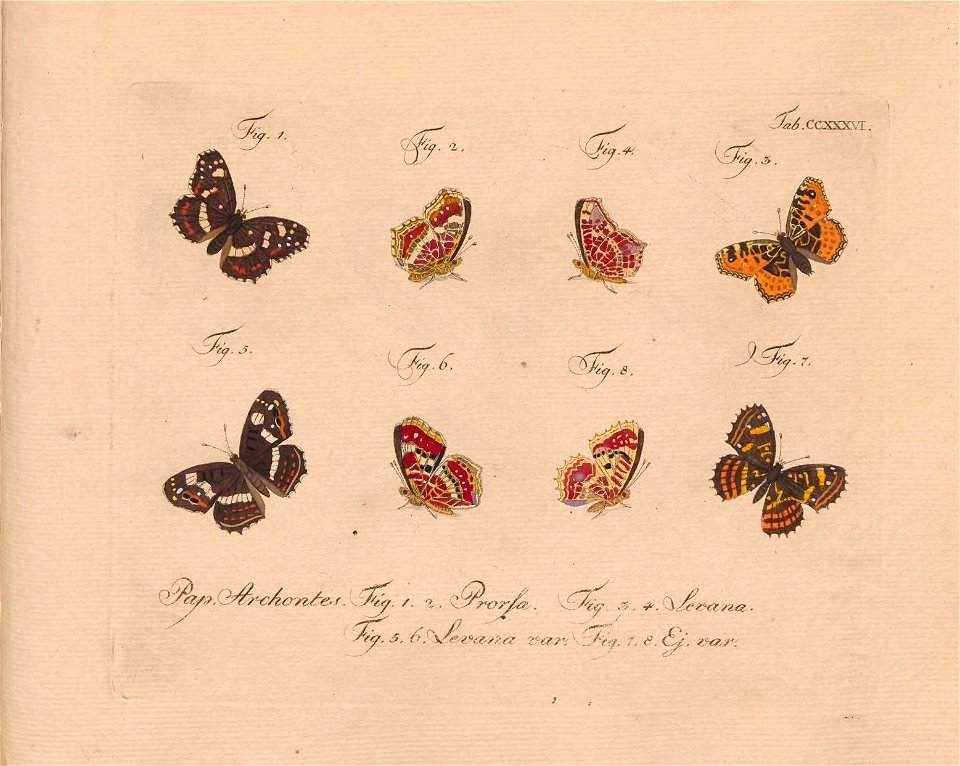 Tab. CCXXXVI.
Fig. 1.
Fig. 2.
Fig. 4.
Fig. 3.
Fig. 5.
Fig. 6.
Fig. 8.
Fig. 7.
Pap. Archontes. Fig. 1. 2. Prorſa. Fig. 3. 4. Levana.
Fig. 5. 6. Levana var. Fig. 7. 8. Ej. var.